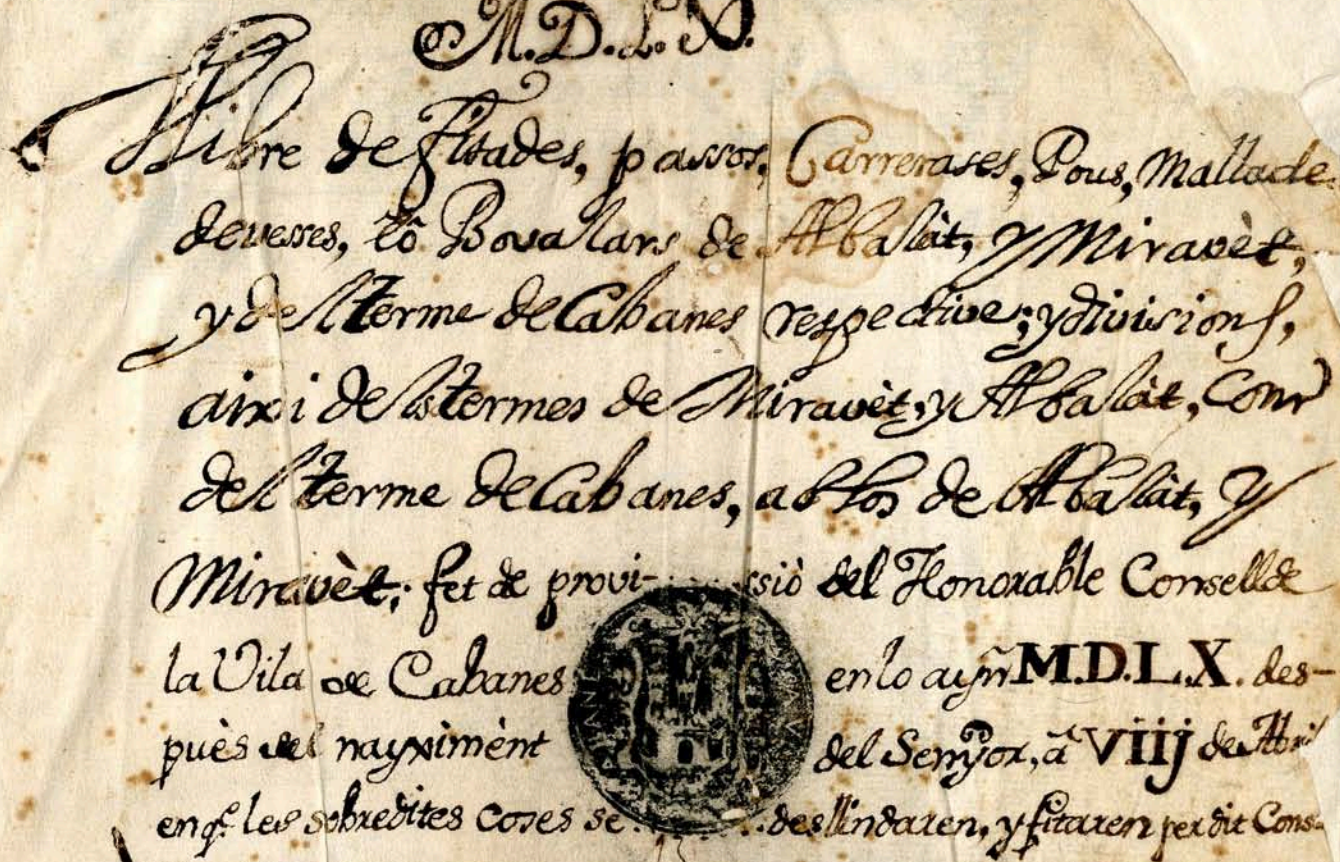 M.D.L.X.
Llibre de fitades, passos, Carrerases, Pous, Mallade
devesses, Bovalars de Albalàt, y Miravèt,
y del terme de Cabanes respective; y divisions,
aixi dels termes de Miravèt, y Albalàt, com
del terme de Cabanes, ab los de Albalàt, y
Miravèt; fet de provi- ssiò del Honorable Consell de
la Vila de Cabanes en lo M.D.L.X. des-
puès del nayximènt del Senyor, à VIIJ de Abril
en q.e les sobredites coses se deslindaren, y fitaren per dit Cons-